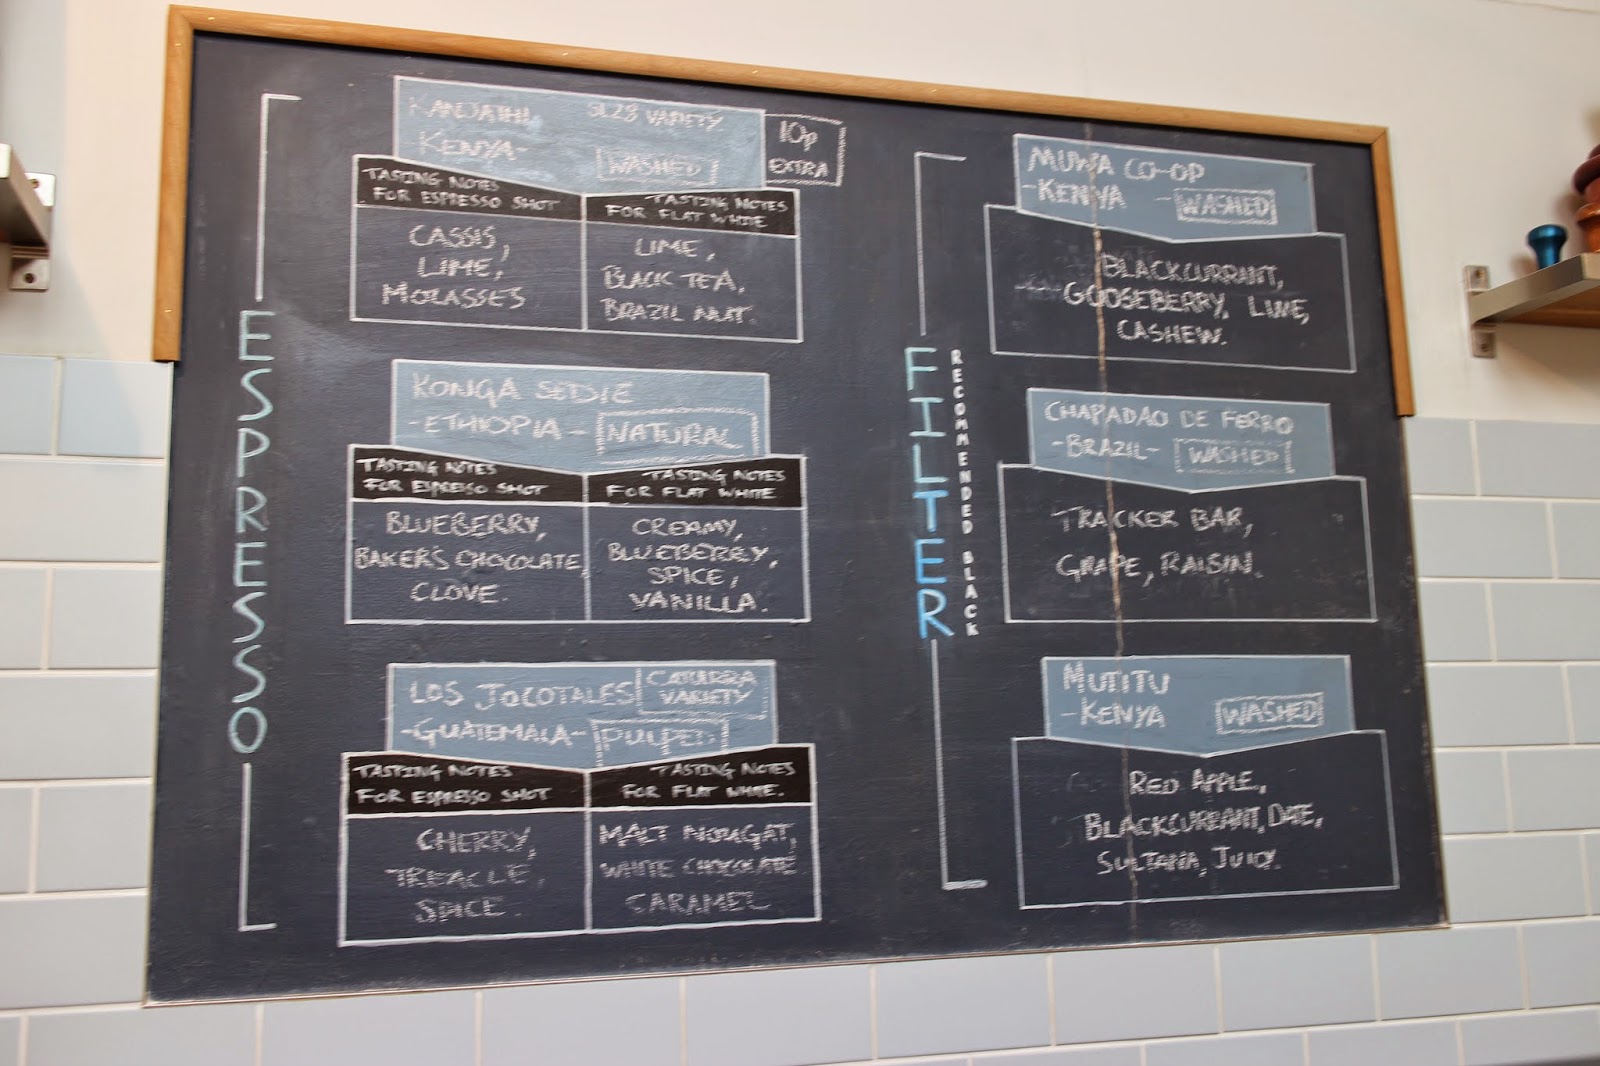 ESPRESSO
KANJATHI SL28 VARIETY
KENYA- WASHED
10p
EXTRA
TASTING NOTES
FOR ESPRESSO SHOT
CASSIS,
LIME,
MOLASSES
TASTING NOTES
FOR FLAT WHITE
LIME,
BLACK TEA,
BRAZIL NUT.
KONGA SEDIE
-ETHIOPIA- NATURAL
TASTING NOTES
FOR ESPRESSO SHOT
BLUEBERRY,
BAKER'S CHOCOLATE,
CLOVE.
TASTING NOTES
FOR FLAT WHITE
CREAMY,
BLUEBERRY,
SPICE,
VANILLA.
LOS JOCOTALES
CATURRA
VARIETY
-GUATEMALA- PULPED
TASTING NOTES
FOR ESPRESSO SHOT
CHERRY,
TREACLE,
SPICE.
TASTING NOTES
FOR FLAT WHITE.
MALT NOUGAT,
WHITE CHOCOLATE
CARAMEL
FILTER
RECOMMENDED BLACK
MUWA CO-OP
-KENYA - WASHED
BLACKCURRANT,
GOOSEBERRY, LIME,
CASHEW.
CHAPADAO DE FERRO
-BRAZIL- WASHED
TRACKER BAR,
GRAPE, RAISIN.
MUTITU
-KENYA WASHED
RED APPLE,
BLACKCURRANT, DATE,
SULTANA, JUICY.